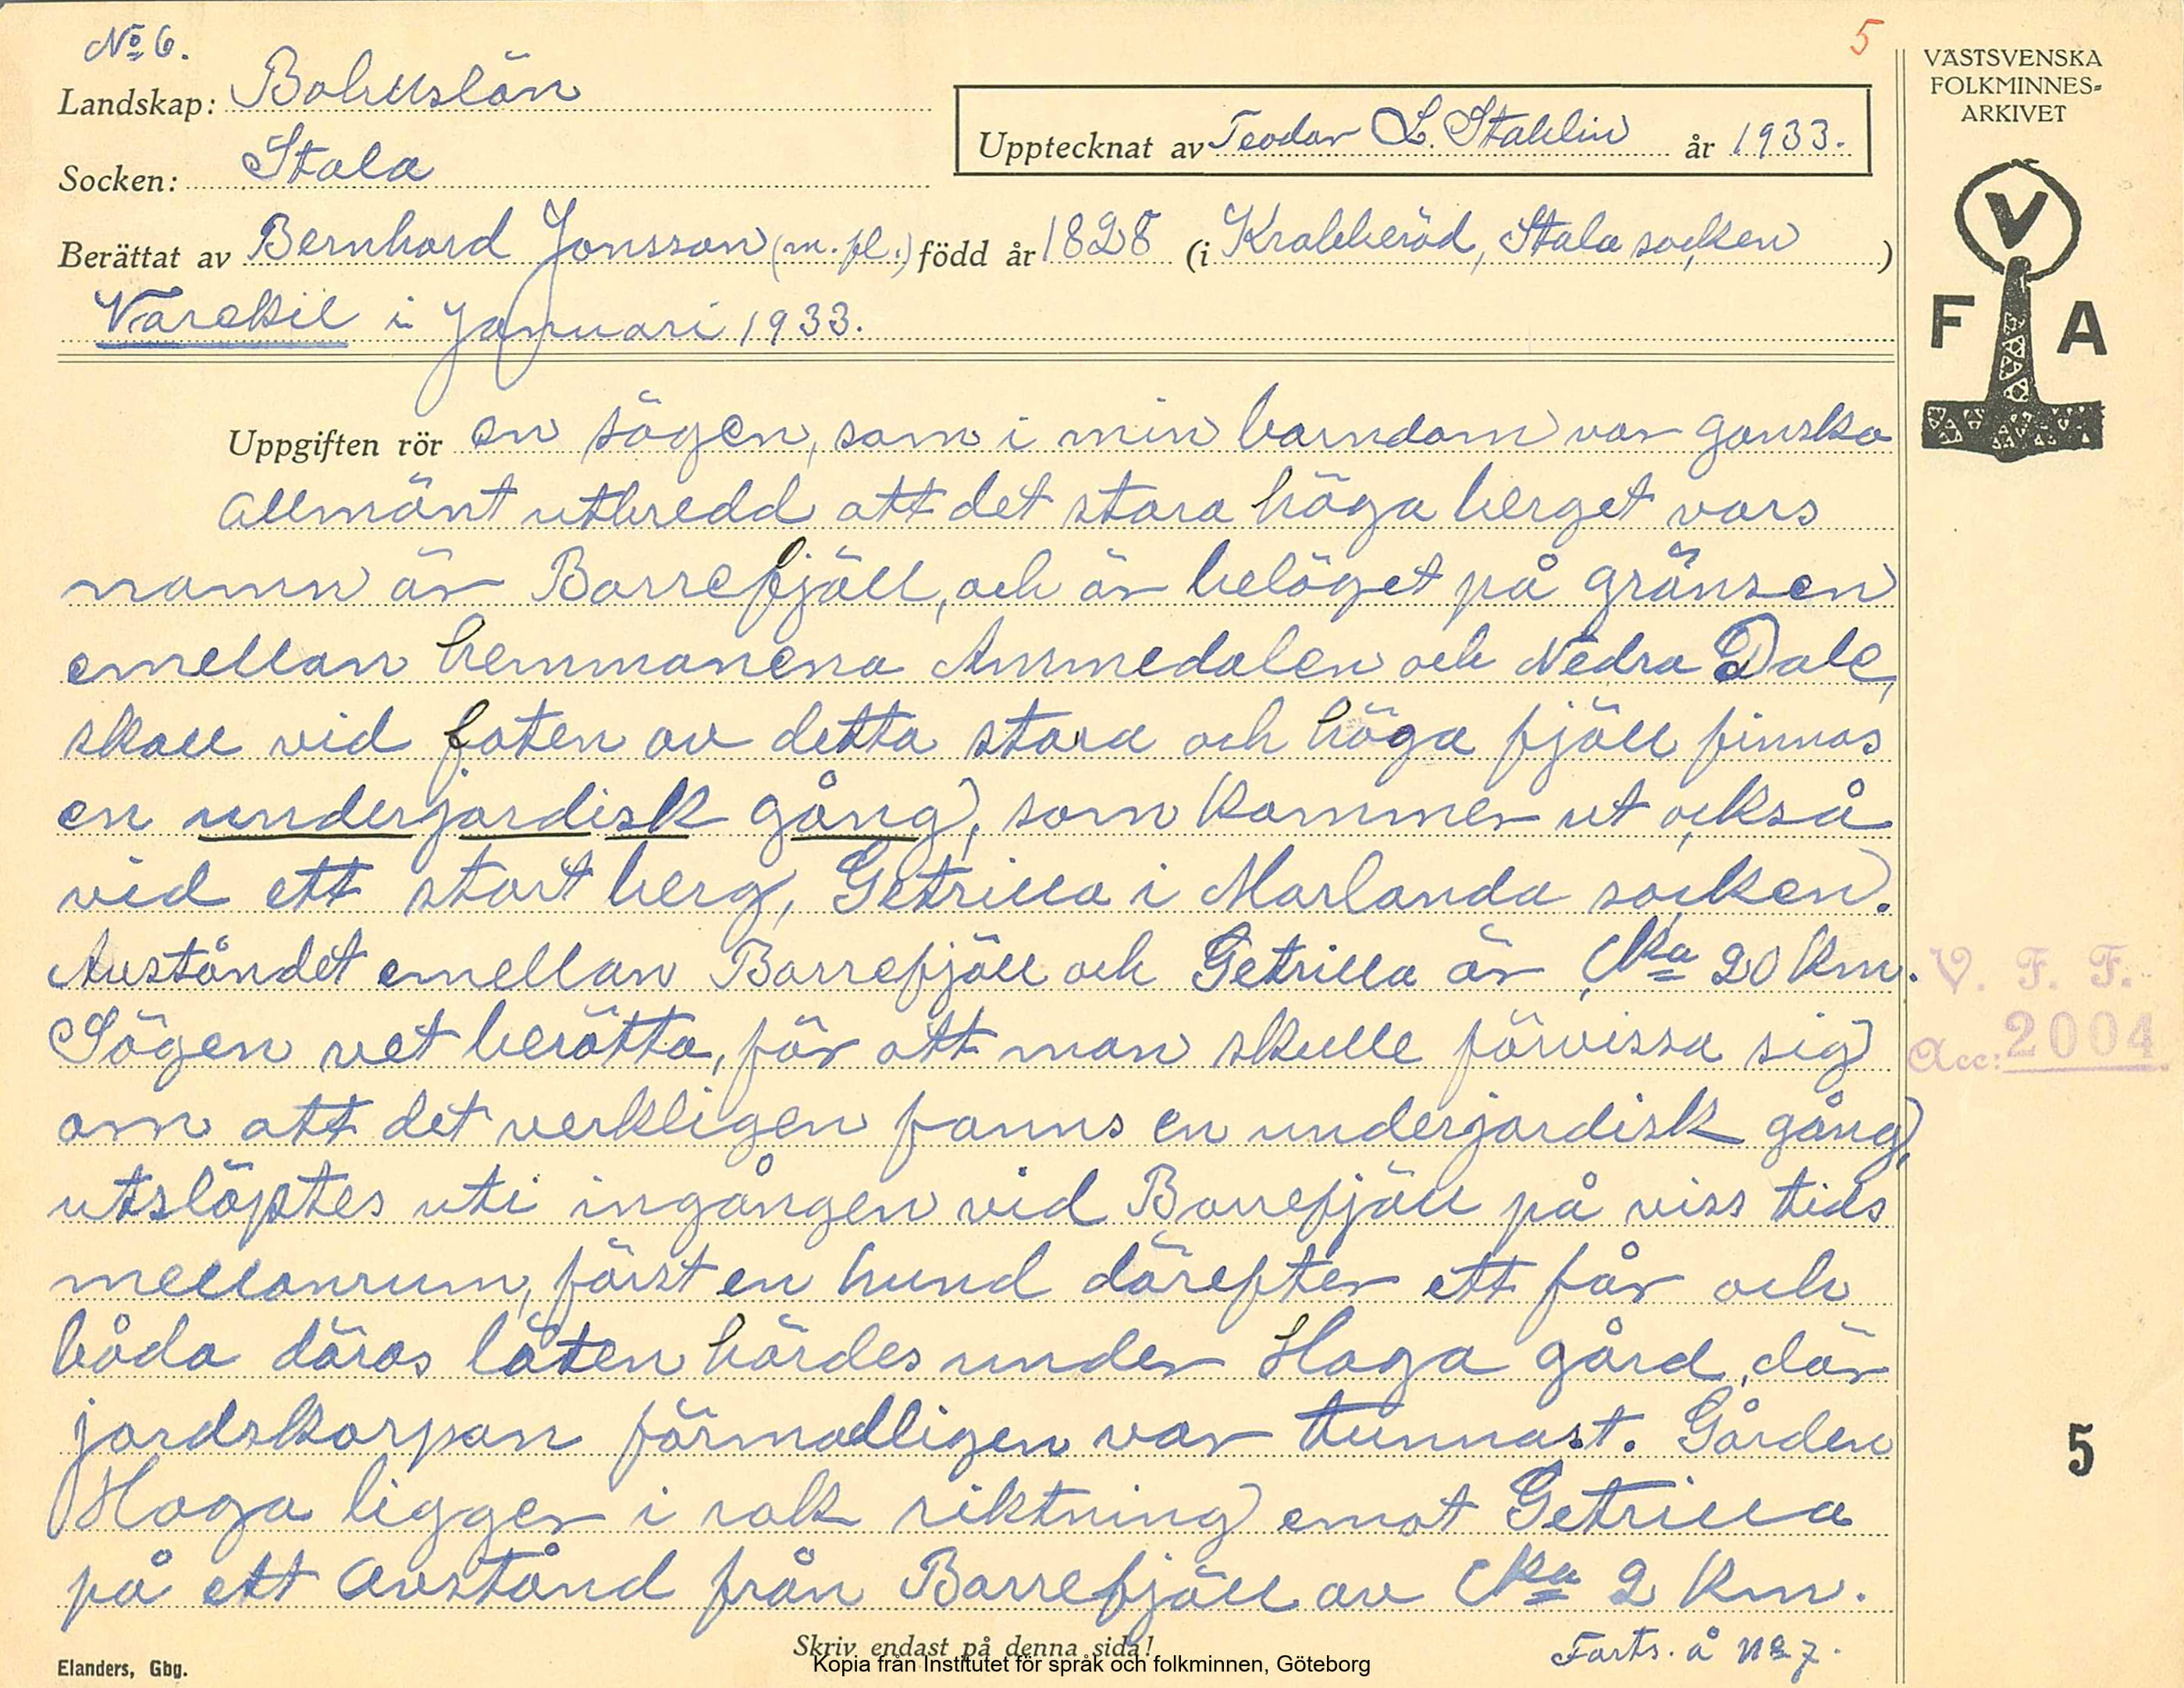 No 6.
5
Landskap: Bohuslän
Socken: Stala
Upptecknat av Teodor L. Stahlin år 1933.
Berättat av Bernhard Jonsson (m. fl.) född år 1828 (i Krabberöd, Stala socken )
Varekil i Januari 1933.
VÄSTSVENSKA
FOLKMINNES-
ARKIVET
V
F A
Uppgiften rör en sägen, som i min barndom var ganska
allmänt utbredd att det stora höga berget vars
namn är Borrefjäll, och är beläget på gränsen
emellan hemmanena Ammedalen och Nedra Dale,
skall vid foten av detta stora och höga fjäll finnas
en underjordisk gång, som kommer ut också
vid ett stort berg, Getrilla i Morlanda socken.
Avståndet emellan Borrefjäll och Getrilla är Cka 20 km.
Sägen vet berätta, för att man skulle förvissa sig
om att det verkligen fanns en underjordisk gång,
utsläptes uti ingången vid Borrefjäll på viss tids
mellanrum, först en hund därefter ett får och
båda däras läten hördes under Haga gård, där
jordskorpan förmodligen var tunnast. Gården
Haga ligger i rak riktning emot Getrilla
på ett avstånd från Borrefjäll av Cka 2 km.
V. F. F.
Acc: 2004
5
Skriv endast på denna sida!
Forts. å No 7.
Elanders, Gbg.
Kopia från Institutet för språk och folkminnen, Göteborg